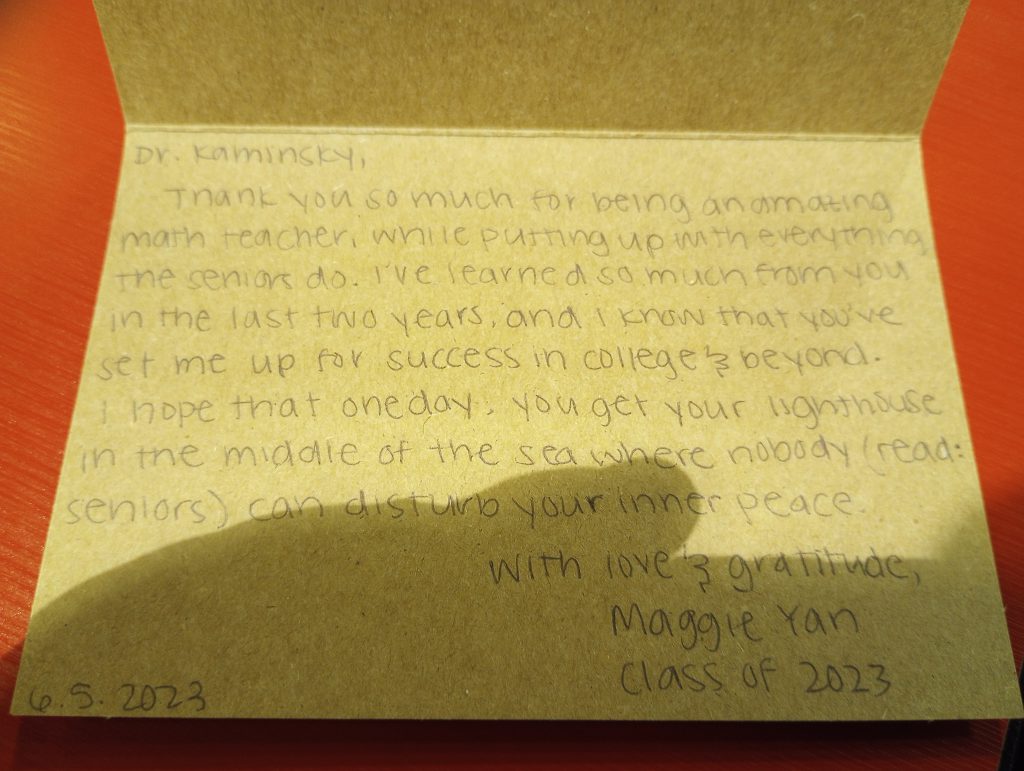 Dr. Kaminsky,
Thank you so much for being an amazing
math teacher, while putting up with everything
the seniors do. I've learned so much from you
in the last two years, and I know that you've
set me up for success in college & beyond.
I hope that one day, you get your lighthouse
in the middle of the sea where nobody (read:
seniors) can disturb your inner peace.
With love & gratitude,
Maggie Yan
Class of 2023
6.5.2023